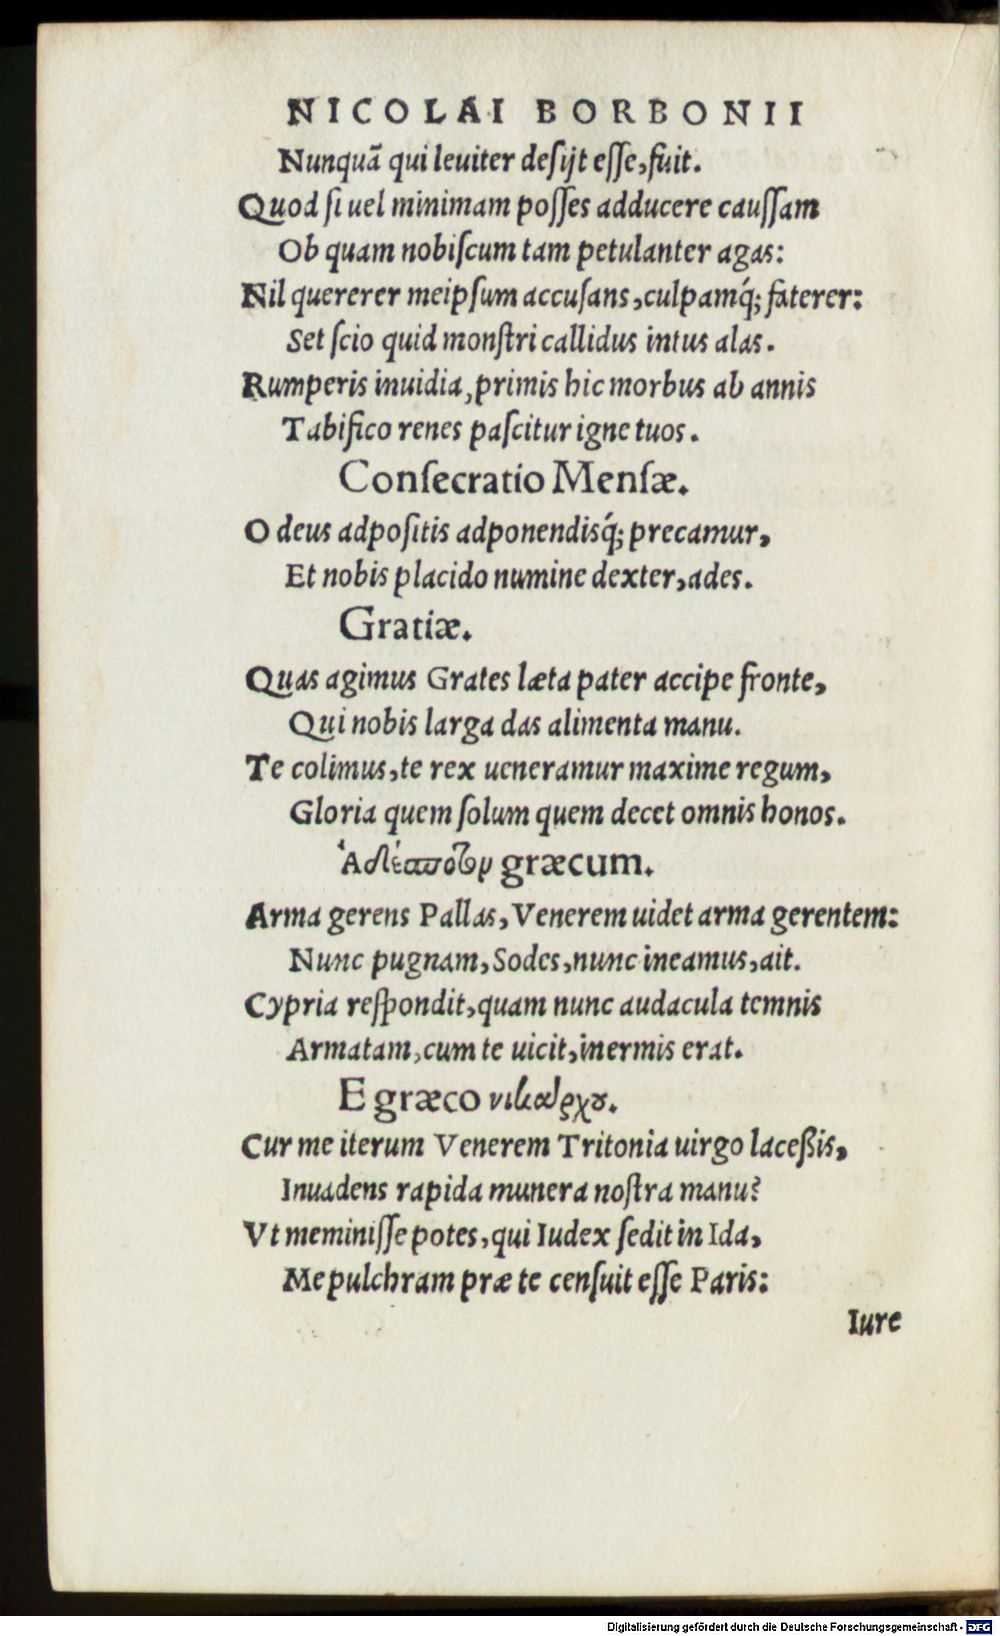 NICOLAI BORBONII
Nunquā qui leuiter deſijt eſſe, fuit.
Quod ſi uel minimam poſſes adducere cauſſam
Ob quam nobiſcum tam petulanter agas:
Nil quererer meipſum accuſans, culpamq́; faterer:
Set ſcio quid monſtri callidus intus alas.
Rumperis inuidia, primis hic morbus ab annis
Tabifico renes paſcitur igne tuos.
Conſecratio Menſæ.
O deus adpoſitis adponendisq́; precamur,
Et nobis placido numine dexter, ades.
Gratiæ.
Quas agimus Grates læta pater accipe fronte,
Qui nobis larga das alimenta manu.
Te colimus, te rex ueneramur maxime regum,
Gloria quem ſolum quem decet omnis honos.
Ἀδέσποτον græcum.
Arma gerens Pallas, Venerem uidet arma gerentem:
Nunc pugnam, Sodes, nunc ineamus, ait.
Cypria reſpondit, quam nunc audacula temnis
Armatam, cum te uicit, inermis erat.
E græco νικάρχου.
Cur me iterum Venerem Tritonia uirgo laceßis,
Inuadens rapida munera noſtra manu?
Vt meminiſſe potes, qui Iudex ſedit in Ida,
Me pulchram præ te cenſuit eſſe Paris:
Iure
Digitalisierung gefördert durch die Deutsche Forschungsgemeinschaft - DFG